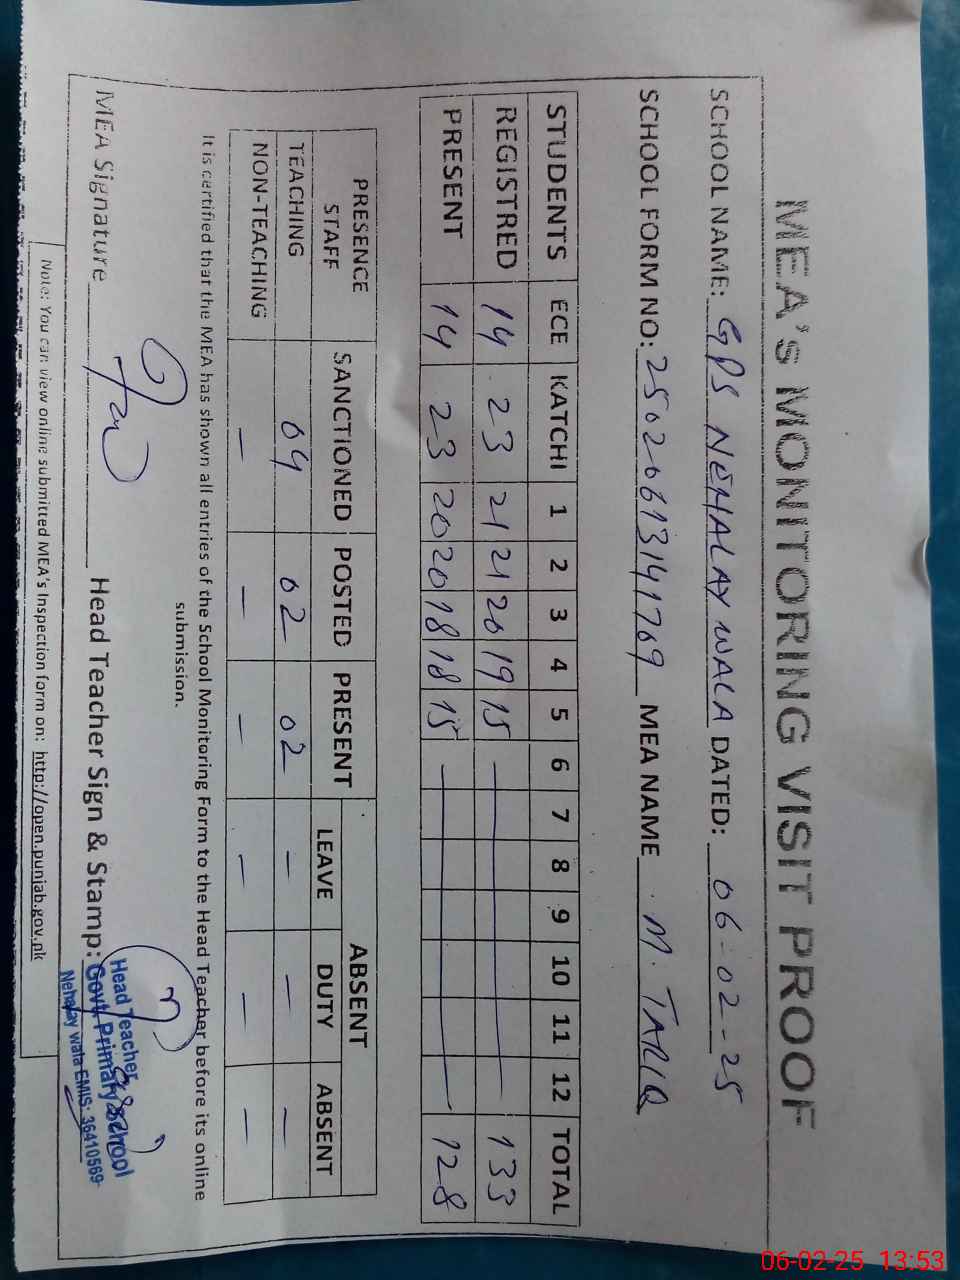 MEA's MONITORING VISIT PROOF
SCHOOL NAME: GPS NEHALAY WALA DATED: 06-02-25
SCHOOL FORM NO: 25020613141709 MEA NAME M. TARIQ
STUDENTS ECE KATCHI 1 2 3 4 5 6 7 8 9 10 11 12 TOTAL
REGISTRED 14 23 21 21 20 19 15 133
PRESENT 14 23 20 20 18 18 15 128
PRESENCE STAFF SANCTIONED POSTED PRESENT ABSENT
LEAVE DUTY ABSENT
TEACHING 04 02 02 - - -
NON-TEACHING - - - - - -
It is certified that the MEA has shown all entries of the School Monitoring Form to the Head Teacher before its online
submission.
MEA Signature Head Teacher Sign & Stamp:
Head Teacher
Govt. Primary School
Nehalay wala EMIS: 36410569
Note: You can view online submitted MEA's Inspection form on: http://open.punjab.gov.pk
06-02-25 13:53